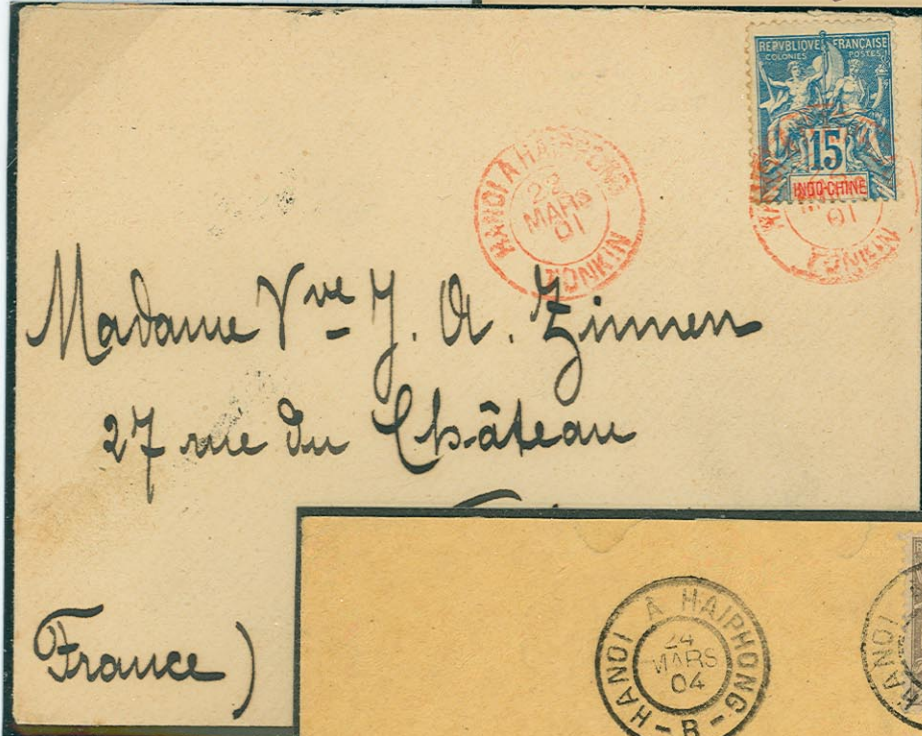 REPVBLIQUE FRANÇAISE
COLONIES POSTES
15
INDO-CHINE
HANOI A HAIPHONG
22
MARS
01
TONKIN
01
TONKIN
Madame Vve J. A. Zinnen
27 rue du Château
France)
HANOI À HAIPHONG
24
MARS
04
- B -
HANOI